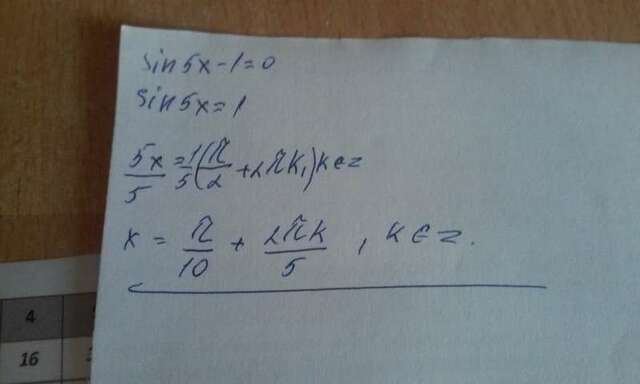 sin5x-1=0
sin5x=1
5x/5=1/5(π/2+2πk,)k∈z
x=π/10+2πk/5, k∈z.
4
16